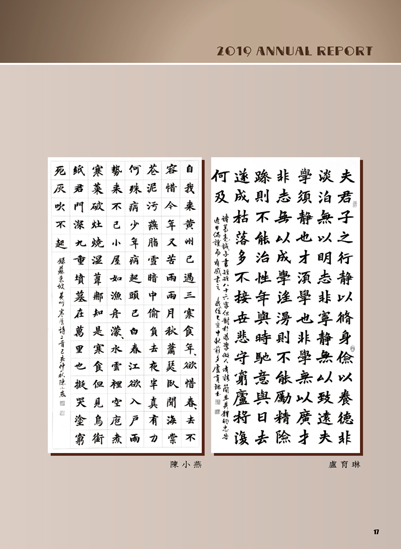 2019 ANNUAL REPORT
夫君子之行靜以脩身儉以養德非
淡泊無以明志非寧靜無以致遠夫
學須靜也才須學也非學無以廣才
非志無以成學淫則不能勵精險
躁則不能治性年與時馳意與日去
遂成枯落多不接世悲守窮廬將復
何及
自我來黃州已過三寒食年、欲惜春、去不
容惜今年又苦雨兩月秋蕭瑟臥聞海棠
花泥污燕脂雪暗中偷負去夜半真有力
何殊病少年病起頭已白春江欲入戶雨
勢來不已小屋如漁舟濛、水雲裡空庖煮
寒菜破灶燒溼葦那知是寒食但見烏銜
紙君門深九重墳墓在萬里也擬哭塗窮
死灰吹不起
陳小燕
盧育琳
17